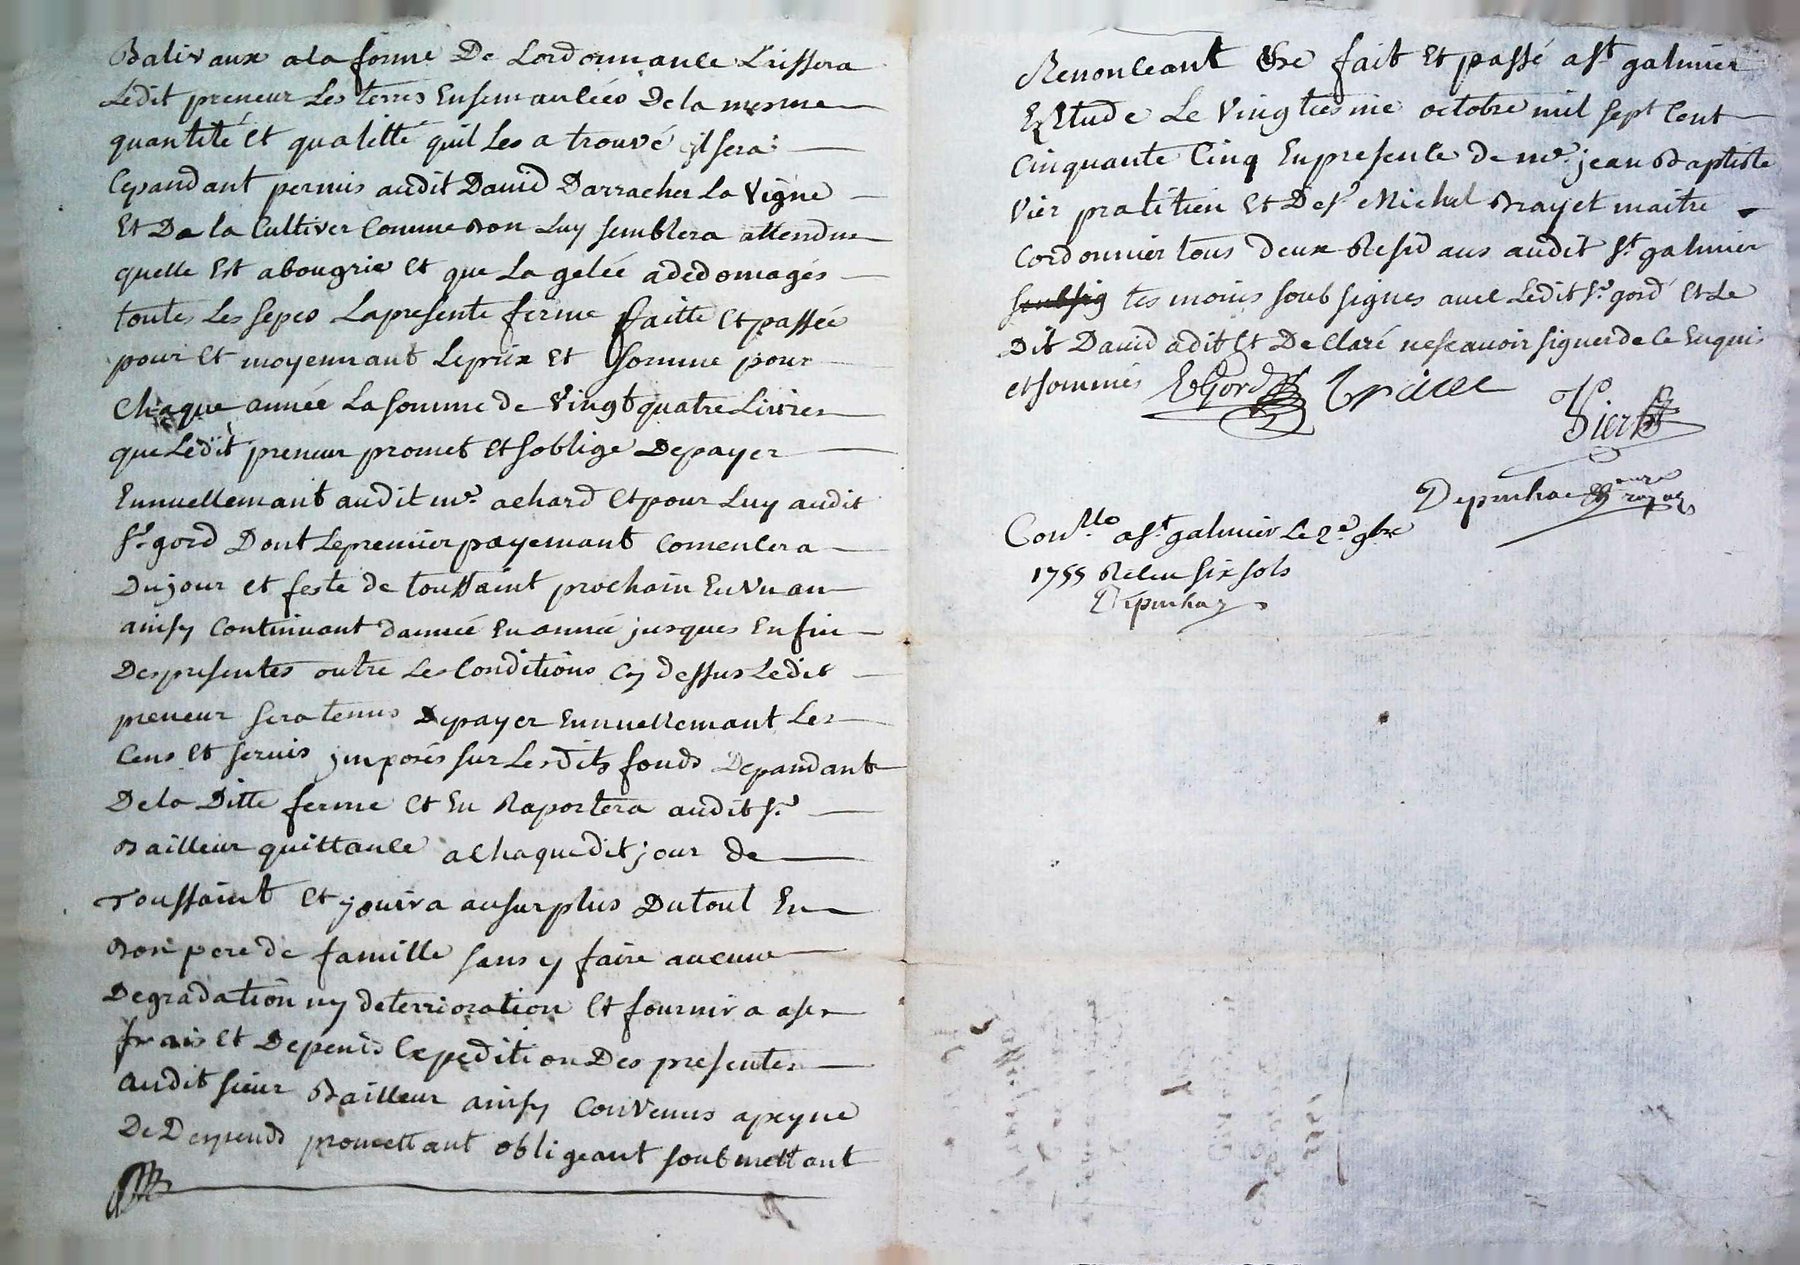 Balivaux a la forme De Lordonnance Laissera
Ledit preneur Les terres Ensemancées De la mesme
quantité et qualitté quil Les a trouvé il sera
Cepandant permis audit David Darracher La Vigne
Et De la Cultiver Comme Bon Luy semblera attendue
quelle Est abougrie et que La gelée a dedomagés
toutes Les seps La presente ferme faitte Et passée
pour Et moyennant Le prix Et somme pour
Chaque année La somme de Vingt quatre Livres
que Ledit preneur promet Et soblige De payer
Ennuellemant audit mr. achard Et pour Luy audit
sr. gord Dont Le premier payemant Comencera
Du jour et feste de toussaint prochain En vn an
ainsy Continuant dannée En année jusques En fin
Des presentes outre Les Conditions Cy dessus Ledit
preneur sera tenus De payer Ennuellemant Les
Cens Et servis jmposés sur Les dits fonds Depandant
De la Ditte ferme Et En Raportera audit sr.
Bailleur quittance a Chaque dit jour de
Toussaint Et jouira au surplus Du tout En
Bon pere de famille sans y faire aucune
Degradation ny deterrioration Et fournira a ses
frais Et Depends Expedition Des presentes
audit sieur Bailleur ainsy Convenus a peyne
De Depends promettant obligeant soubmettant
Renonceant &c fait Et passé a st. galmier
Estude Le Vingtiesme octobre mil sept Cent
Cinquante Cinq En presence de mr. jean Baptiste
Vier pratitien Et De sr. Michel Brayet maitre
Cordonnier tous deux Residans audit st. galmier
soubsig tesmoins soubsignes avec Ledit sr. gord Et Le
Dit David a dit Et De Claré ne scavoir signer de Ce Enquis
et sommés Gord
Vier
Depinhac
Conllé a st. galmier Le 2e 9bre
1755 Receu six sols
Depinhac